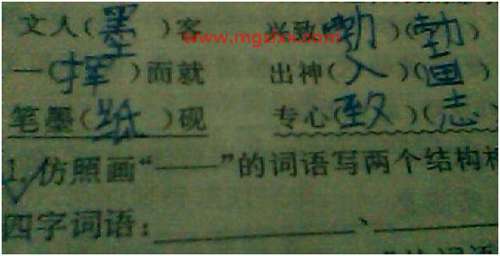 文人(墨)客 兴致(勃)(勃)
www.mgzxzx.com
一(挥)而就 出神(入)(画)
笔墨(纸)砚 专心(致)(志)
1.仿照画“——”的词语写两个结构相
四字词语:________、________